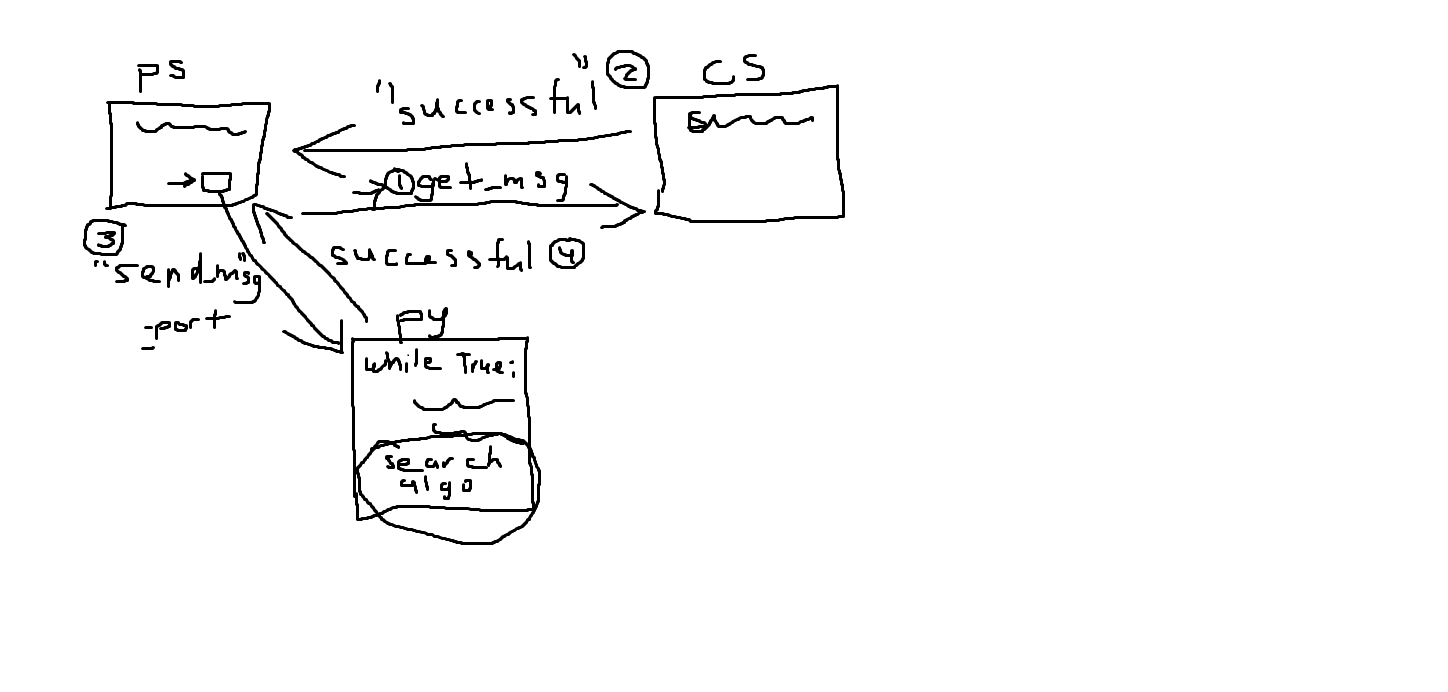 PS
"successful" ②
CS
①get_msg
③
"send_msg"
-port
successful ④
PY
while True:
search
algo